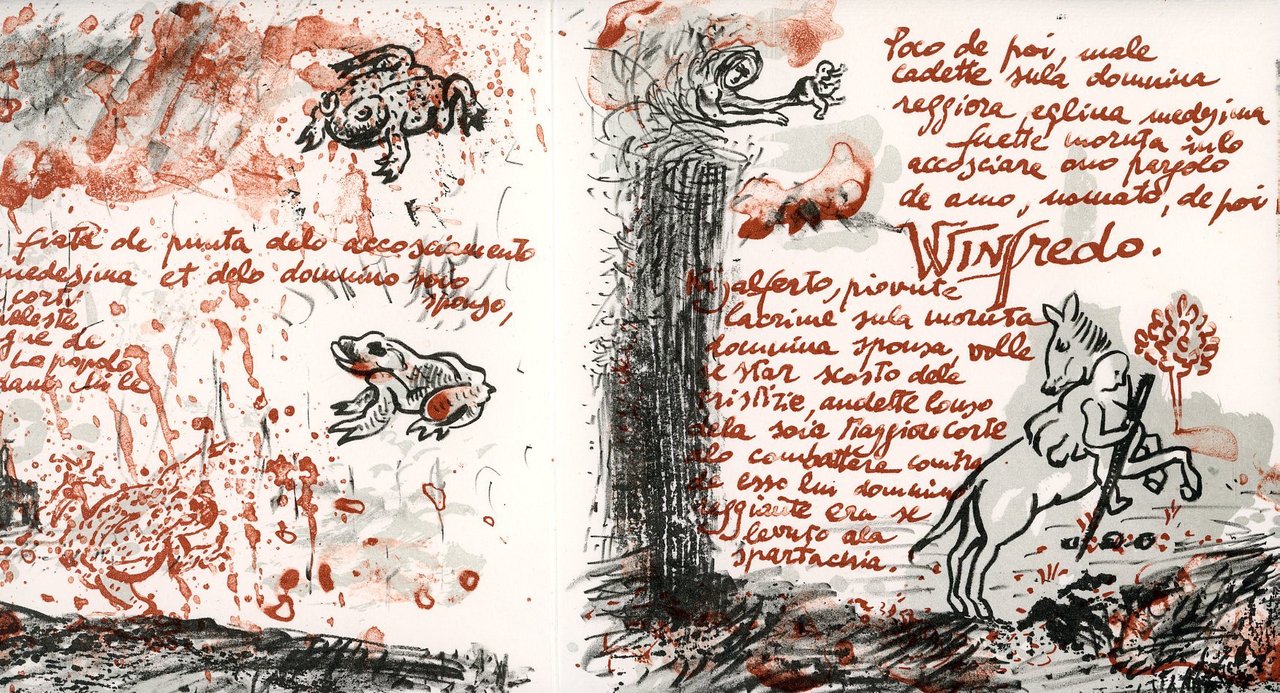 fiata de punta delo accosciamento
medesima et delo domnino sovo
corti sponso,
celeste
gue de
uo popolo
danei in le
Poco de poi, male
cadette sula domnina
reggiora, eglina medesima
fuette moruta inlo
accosciare ono pargolo
de amo, nomato, de poi
WINfredo.
piovute
lacrime sula moruta
domnina sponsa, volle
se star scosto dele
tristizie, andette lonso
dela soia Maggiore Corte
alo combattere contra
de esso lui domnino
reggiante era se
levuto ala
spartachia.